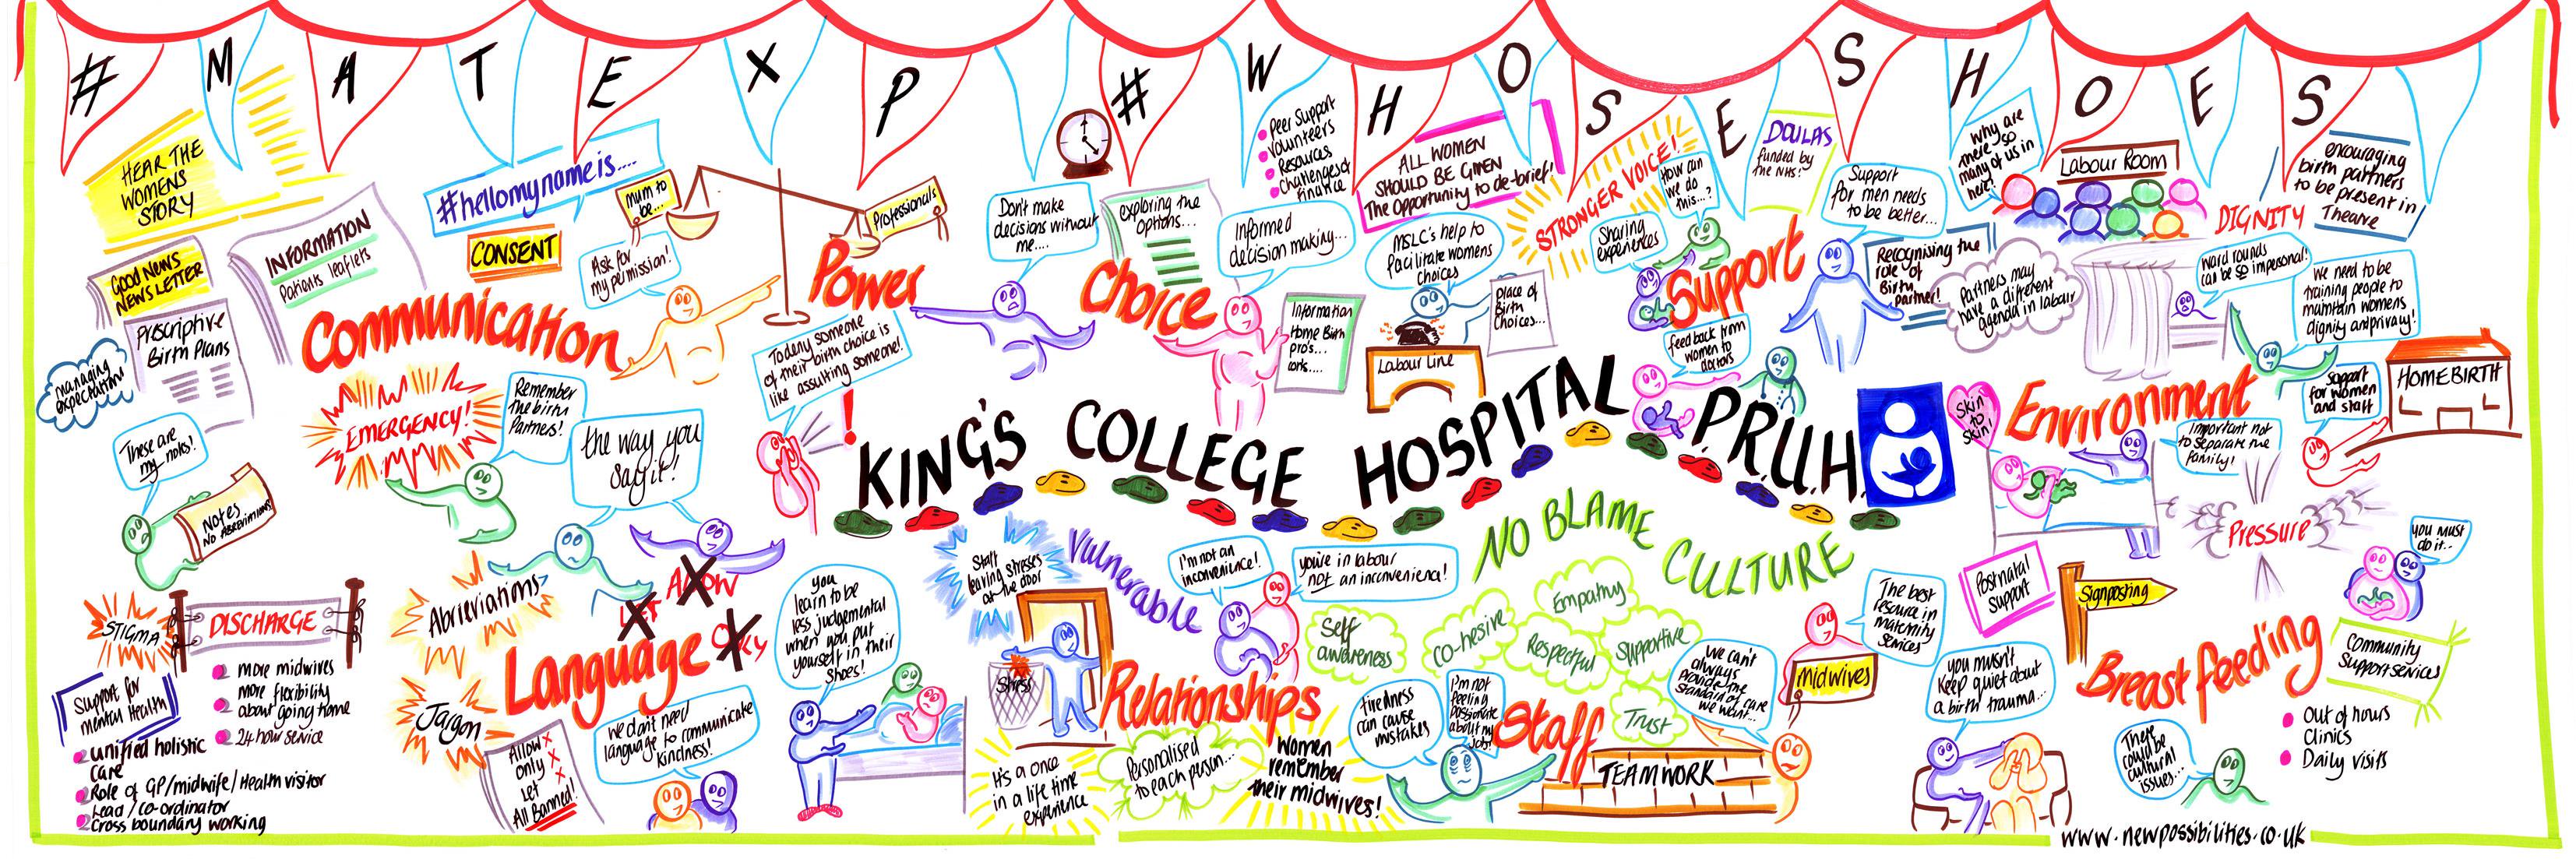 # M A T E X P # W H O S E S H O E S
HEAR THE
WOMENS
STORY
GOOD NEWS
NEWSLETTER
Prescriptive
Birth Plans
managing
expectations
INFORMATION
Patients leaflets
#hellomynameis....
CONSENT
Ask for
my permission!
Communication
EMERGENCY!
Remember
the birth
Partners!
the way you
say it!
These are
my notes!
Notes
NO ABREVIATIONS
mum to
be...
Professionals
Power
To deny someone
of their birth choice is
like assulting someone!
!
Don't make
decisions without
me....
exploring the
options...
Choice
Informed
decision making...
Information
Home Birth
pro's...
cons...
Peer Support
Volunteers
Resources
Challenges of
finance
ALL WOMEN
SHOULD BE GIVEN
The opportunity to de-brief!
MSLC's help to
facilitate womens
choices
Labour Line
place of
Birth
Choices...
STRONGER VOICE!
How can
we do
this...?
Sharing
experiences
DOULAS
funded by
the NHS!
Support
Support
for men needs
to be better...
feedback from
women to
doctors
Recognising the
role of
Birth
partner!
Partners may
have a different
agenda in labour
Why are
there so
many of us in
here!
Labour Room
DIGNITY
encouraging
birth partners
to be present in
Theatre
Ward rounds
can be so impersonal!
We need to be
training people to
maintain womens
dignity and privacy!
Support
for women
and staff
HOMEBIRTH
Environment
Skin
to
Skin!
Important not
to separate the
family!
KING'S COLLEGE HOSPITAL P.R.U.H.
STIGMA
DISCHARGE
more midwives
more flexibility
about going home
24 hour service
Support for
mental Health
unified holistic
care
Role of GP/midwife/Health visitor
Lead/co-ordinator
Cross boundary working
Abrieviations
Jargon
LET
ALLOW
ONLY
Language
Allow x
only x
Let x
All Banned!
We don't need
language to communicate
kindness!
you
learn to be
less judgemental
when you put
yourself in their
shoes!
Staff
leaving stresses
at the door
Stress
Vulnerable
I'm not an
inconvenience!
you're in labour
not an inconvenience!
Relationships
It's a once
in a life time
experience
Personalised
to each person...
Women
remember
their midwives!
NO BLAME
CULTURE
Self
awareness
co-hesive
Empathy
Respectful
Supportive
Trust
tiredness
can cause
mistakes
I'm not
feeling
passionate
about my
job!
Staff
TEAMWORK
We can't
always
provide the
standard of care
we want...
Midwives
The best
resource in
maternity
services
you musn't
keep quiet about
a birth trauma...
Postnatal
Support
Signposting
Pressure
you must
do it...
Breast feeding
Community
Support services
Out of hours
Clinics
Daily visits
There
could be
cultural
issues...
www.newpossibilities.co.uk